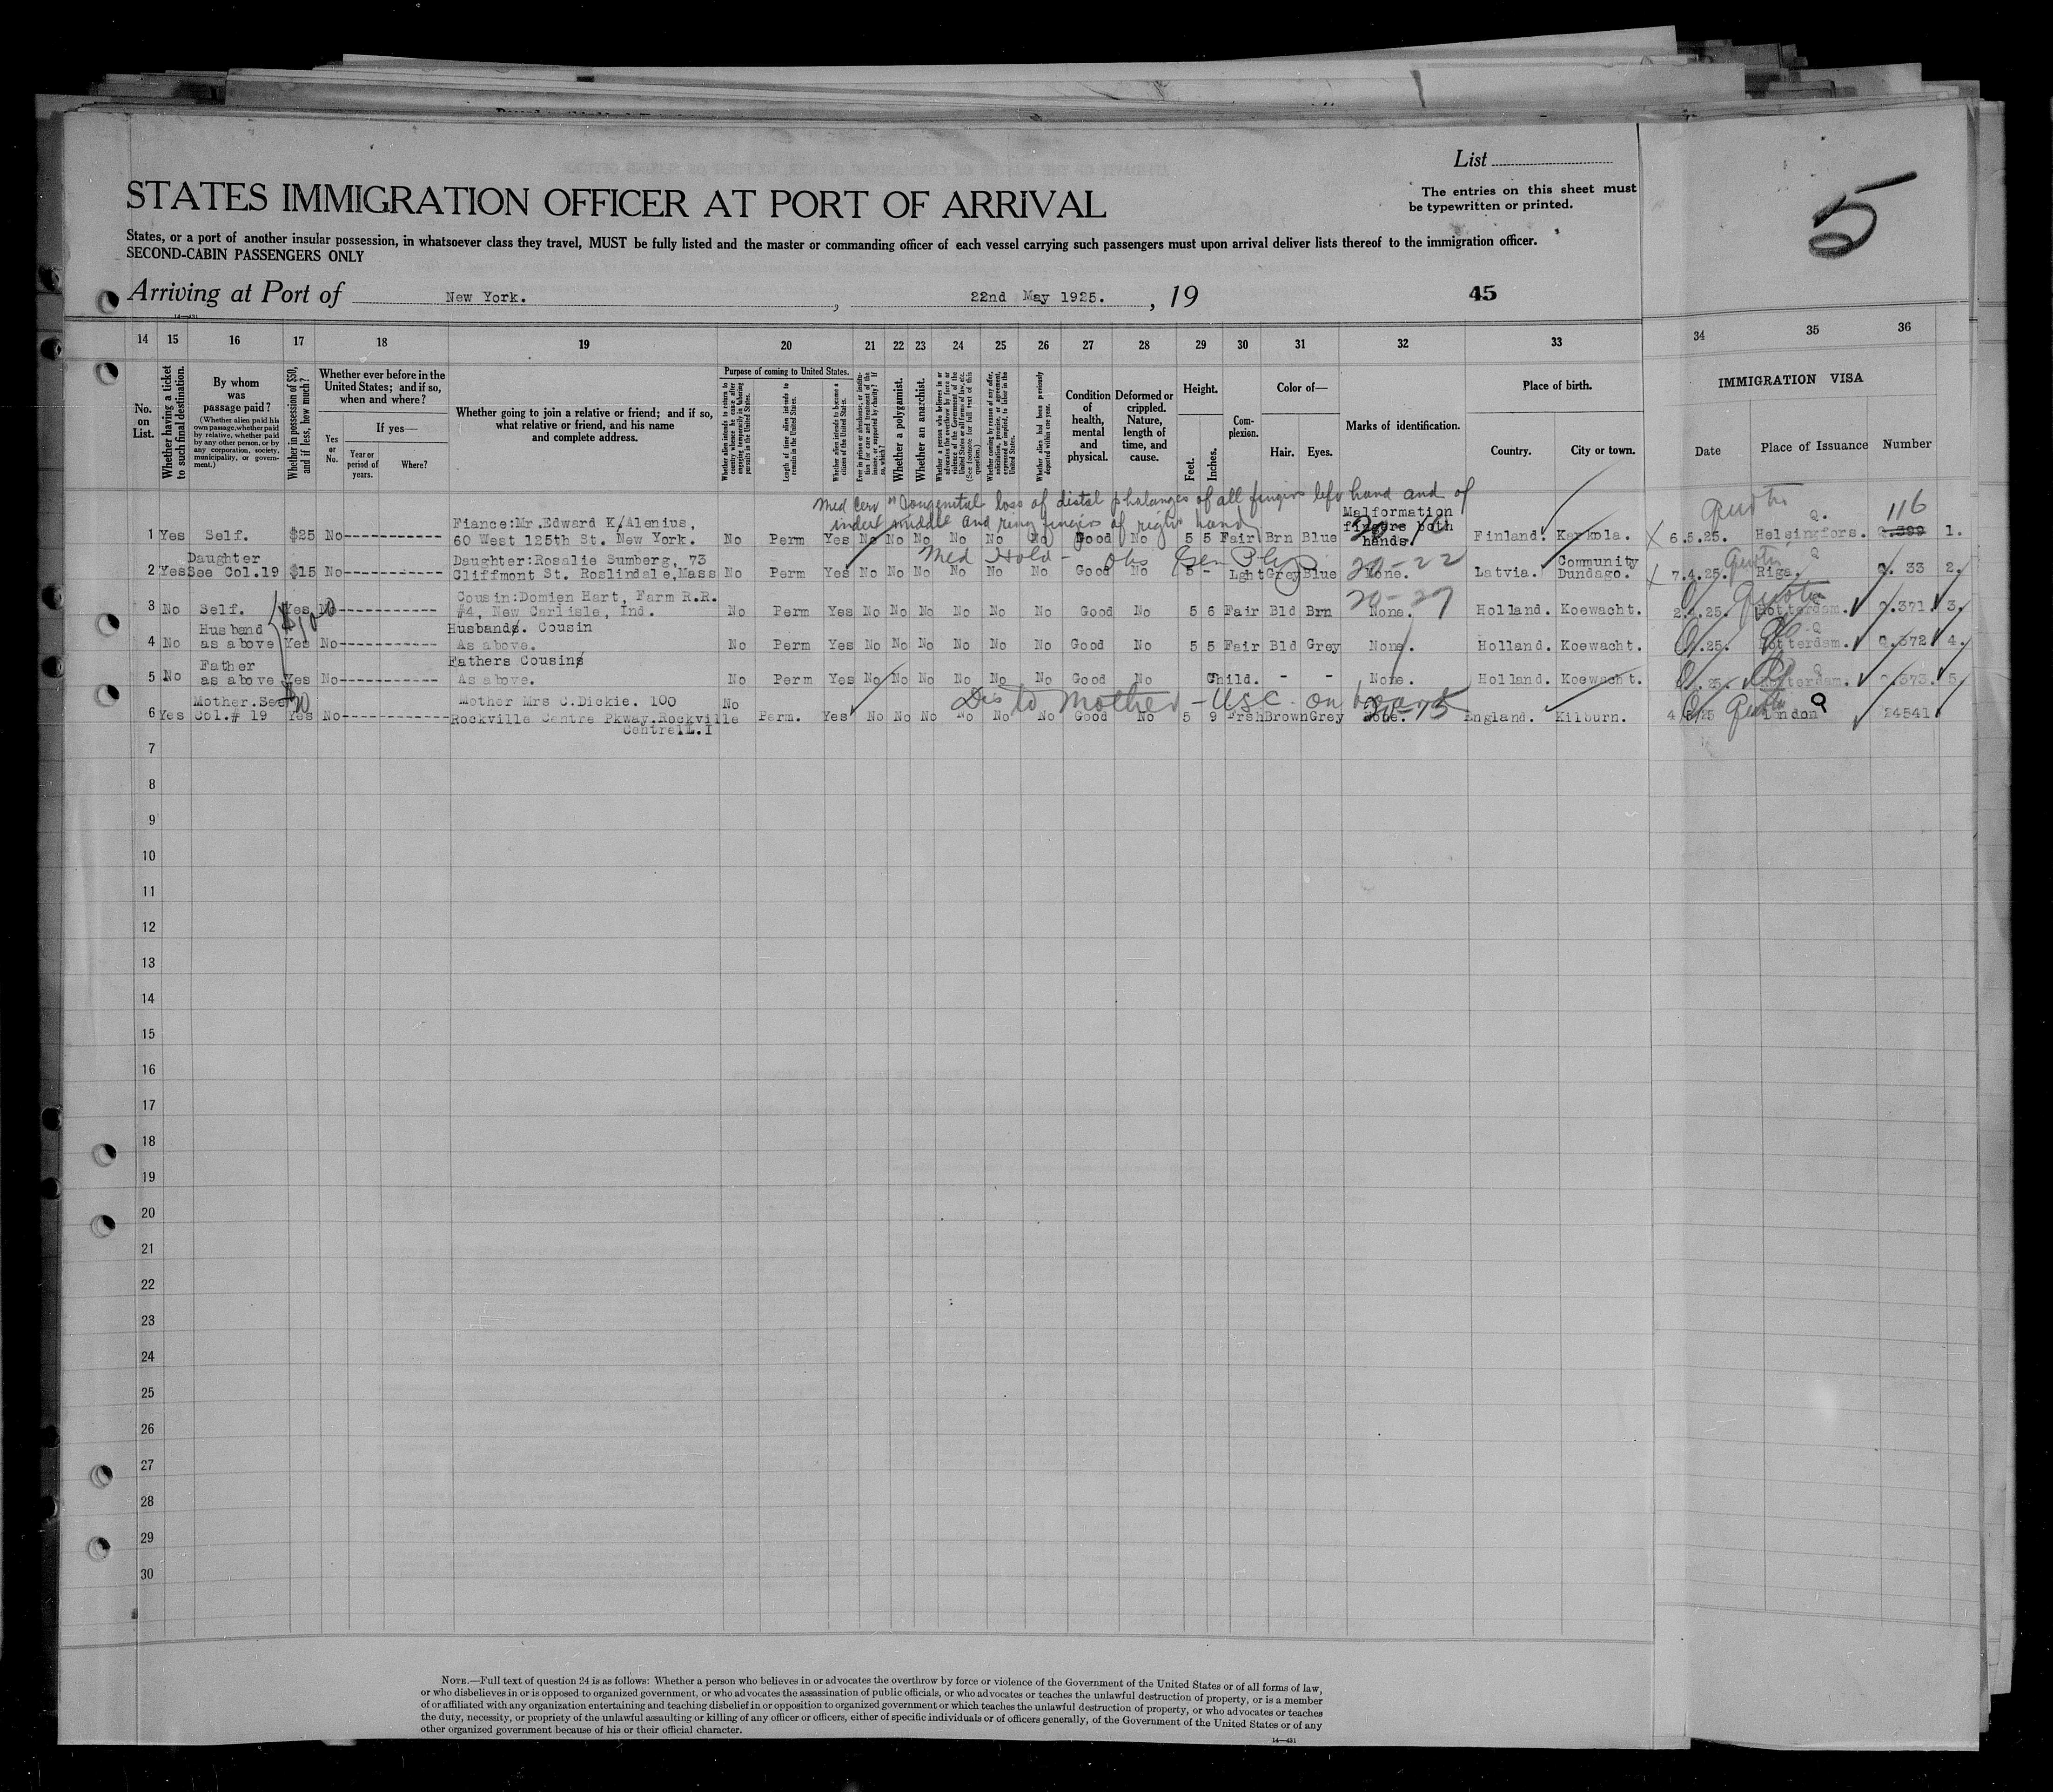 List
The entries on this sheet must
be typewritten or printed.
5
STATES IMMIGRATION OFFICER AT PORT OF ARRIVAL
States, or a port of another insular possession, in whatsoever class they travel, MUST be fully listed and the master or commanding officer of each vessel carrying such passengers must upon arrival deliver lists thereof to the immigration officer.
SECOND-CABIN PASSENGERS ONLY
Arriving at Port of New York. , 22nd May 1925. , 19 45
14 15 16 17 18 19 20 21 22 23 24 25 26 27 28 29 30 31 32 33 34 35 36
No. on List.
Whether having a ticket to such final destination.
By whom was passage paid?
(Whether alien paid his own passage, whether paid by relative, whether paid by any other person, or by any corporation, society, municipality, or government.)
Whether in possession of $50, and if less, how much?
Whether ever before in the United States; and if so, when and where?
Yes or No.
If yes—
Year or period of years.
Where?
Whether going to join a relative or friend; and if so, what relative or friend, and his name and complete address.
Purpose of coming to United States.
Whether alien intends to return to country whence he came after engaging temporarily in laboring pursuits in the United States.
Length of time alien intends to remain in the United States.
Whether alien intends to become a citizen of the United States.
Whether a polygamist.
Whether an anarchist.
Condition of health, mental and physical.
Deformed or crippled. Nature, length of time, and cause.
Height.
Feet.
Inches.
Complexion.
Color of—
Hair.
Eyes.
Marks of identification.
Place of birth.
Country.
City or town.
IMMIGRATION VISA
Date
Place of Issuance
Number
Med Cert "Congenital loss of distal phalanges of all fingers left hand and of
index middle and ring fingers of right hand
Quota
116
1 Yes Self. $25 No Fiance:Mr.Edward K/Alenius, 60 West 125th St. New York. No Perm Yes No No No No No No Good No 5 5 Fair Brn Blue Malformation fingers both hands. Finland. Karkola. 6.5.25. Helsingfors. Q. 399 1.
Med Hold
20-22
2 Yes Daughter See Col.19 $15 No Daughter:Rosalie Sumberg, 73 Cliffmont St. Roslindale,Mass No Perm Yes No No No No No No Good No 5 - Lght Grey Blue None. Latvia. Community Dundago. 7.4.25. Riga. Q. 33 2.
20-27
3 No Self. Yes No Cousin:Domien Hart, Farm R.R. #4, New Carlisle, Ind. No Perm Yes No No No No No No Good No 5 6 Fair Bld Brn None. Holland. Koewacht. Rotterdam. Q.371 3.
4 No Husband as above Yes No Husbands. Cousin As above. No Perm Yes No No No No No No Good No 5 5 Fair Bld Grey None. Holland. Koewacht. Rotterdam. Q.372 4.
5 No Father as above Yes No Fathers Cousins As above. No Perm Yes No No No No No No Good No Child. - - None. Holland. Koewacht. Rotterdam. Q.373 5.
Dis to Mother - USC on board
6 Yes Mother.See Col.# 19 Yes No Mother Mrs C.Dickie. 100 Rockville Centre Pkway.Rockville Centre L.I No Perm. Yes No No No No No No Good No 5 9 Frsh Brown Grey None. England. Kilburn. London Q 24541
7
8
9
10
11
12
13
14
15
16
17
18
19
20
21
22
23
24
25
26
27
28
29
30
NOTE.—Full text of question 24 is as follows: Whether a person who believes in or advocates the overthrow by force or violence of the Government of the United States or of all forms of law,
or who disbelieves in or is opposed to organized government, or who advocates the assassination of public officials, or who advocates or teaches the unlawful destruction of property, or is a member
of or affiliated with any organization entertaining and teaching disbelief in or opposition to organized government or which teaches the unlawful destruction of property, or who advocates or teaches
the duty, necessity, or propriety of the unlawful assaulting or killing of any officer or officers, either of specific individuals or of officers generally, of the Government of the United States or of any
other organized government because of his or their official character.
14—431